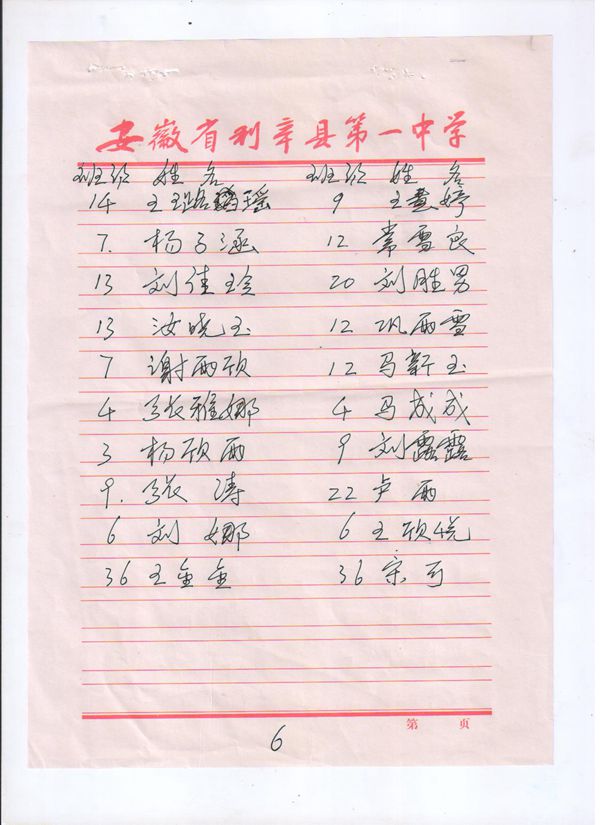 安徽省利辛县第一中学
班级 姓名 班级 姓名
14 王璐瑶 9 王慧婷
7. 杨子涵 12 常雪良
13 刘佳玲 20 刘胜男
13 汝晓玉 12 巩雨雪
7 谢雨欣 12 马新玉
4 张雅娜 4 马成成
3 杨欣雨 9 刘露露
9. 张涛 22 卢雨
6 刘娜 6 王欣悦
36 王金金 36 宋可
第 页
6